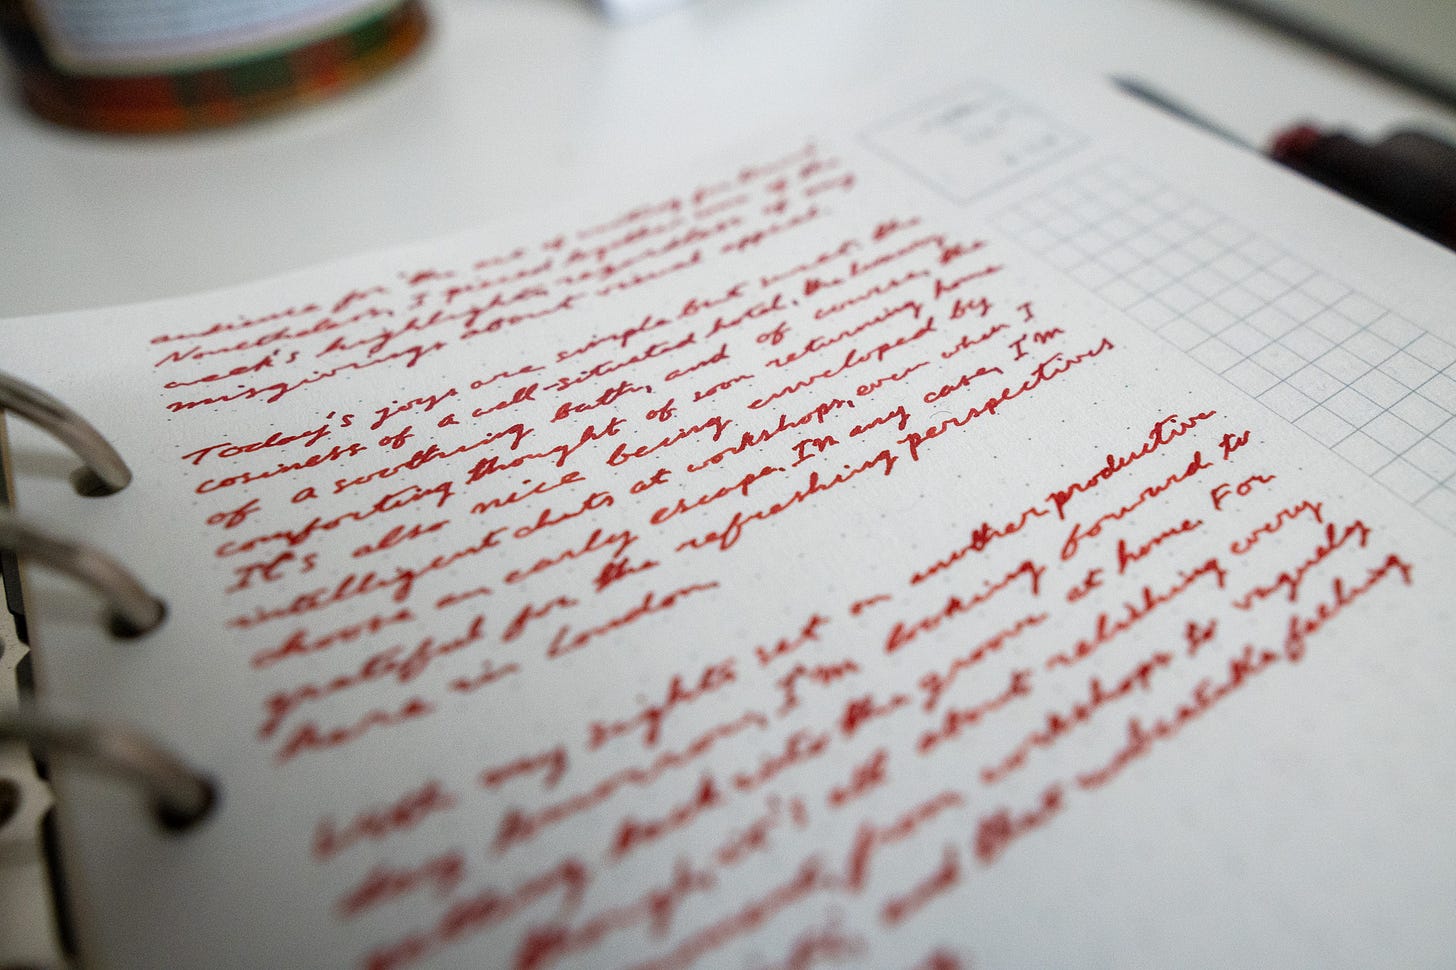 audience for the art of writing for
Nonetheless, I pieced together some of the
week's highlights regardless of any
misgivings about visual appeal.
Today's joys are simple but sweet: the
cosiness of a well-situated hotel, the luxury
of a soothing bath, and of course, the
comforting thought of soon returning home
It's also nice being enveloped by
intelligent chats at workshops, even when I
choose an early escape. In any case, I'm
grateful for the refreshing perspectives
here in London
With my sights set on another productive
day tomorrow, I'm looking forward to
getting back into the groove at home. For
though, it's all about relishing every
moment, from workshops to vaguely
and that unbeatable feeling